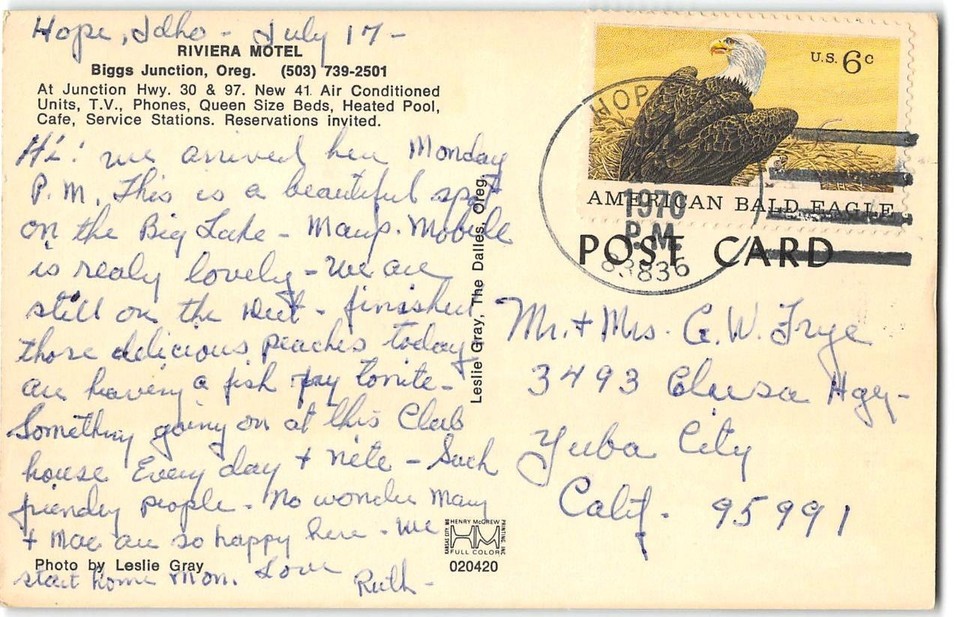 Hope, Idho - July 17 -
RIVIERA MOTEL
Biggs Junction, Oreg. (503) 739-2501
At Junction Hwy. 30 & 97. New 41 Air Conditioned
Units, T.V., Phones, Queen Size Beds, Heated Pool,
Cafe, Service Stations. Reservations invited.
Hi! we arrived here Monday
P.M. This is a beautiful spot
on the Big Lake - Marys. Mobile
is realy lovely - We are
still on the Diet - finished
those delicious peaches today
are having a fish fry tonite -
Something going on at this Club
house Every day + nite - Such
friendly people - No wonder Mary
+ Mac are so happy here - We
start home Mon. Love
Ruth -
Photo by Leslie Gray
Leslie Gray, The Dalles, Oreg.
KANSAS CITY, MO
HENRY McGREW
PRINTING, INC
HM
FULL COLOR
020420
U.S. 6c
AMERICAN BALD EAGLE
HOPE
1970
P.M.
83836
POST CARD
Mr. + Mrs. G. W. Frye
3493 Colusa Hgy -
Yuba City
Calif. 95991